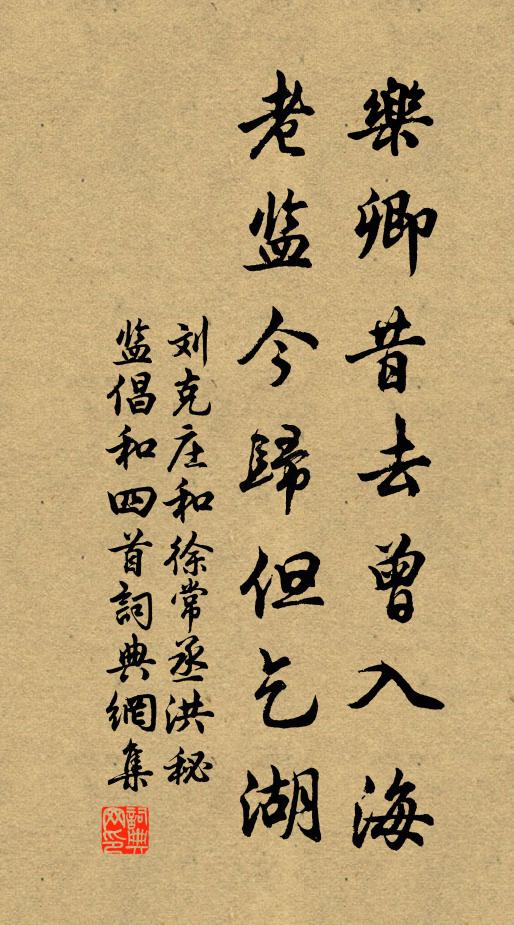 樂卿昔去曾入海
老监今歸但乞湖
刘克庄和徐常丞洪秘
监倡和四首詞典網集
詞典網印